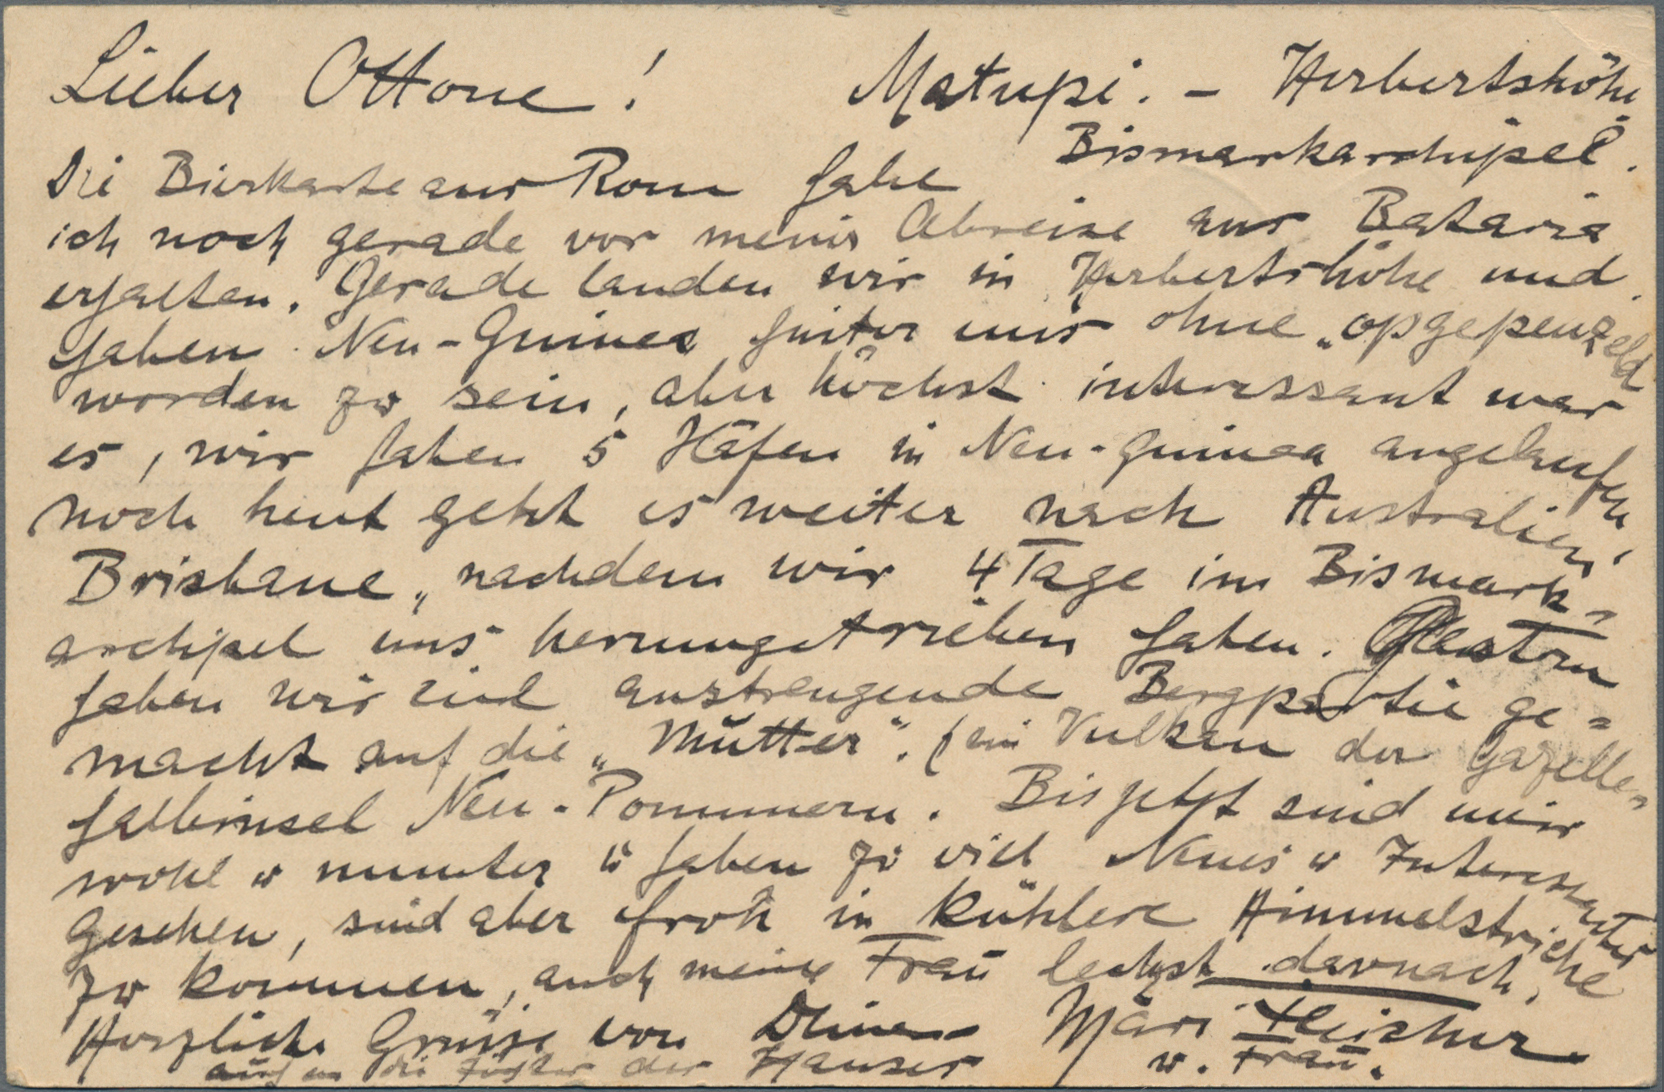 Lieber Ottone! Matupi. - Herbertshöhe
Bismarkarchipel.
Die Bierkarte aus Rom habe
ich noch gerade vor meiner Abreise aus Batavia
erhalten. Gerade landen wir in Herbertshöhe und
haben Neu-Guinea hinter uns ohne „opgepenzeld
worden zu sein, aber höchst interessant war
es, wir haben 5 Häfen in Neu-Guinea angelaufen
noch heut geht es weiter nach Australien,
Brisbane, nachdem wir 4 Tage im Bismark-
archipel uns herumgetrieben haben. Gestern
haben wir eine anstrengende Bergpartie ge=
macht auf die „Mutter". (ein Vulkan der Gazelle=
halbinsel Neu-Pommern. Bis jetzt sind wir
wohl u munter u haben zu viel Neues u Interessantes
gesehen, sind aber froh in kühlere Himmelstriche
zu kommen, auch meine Frau lechzt darnach.
Herzliche Grüsse von Deinem
u. Frau.
auch an die der Hauser